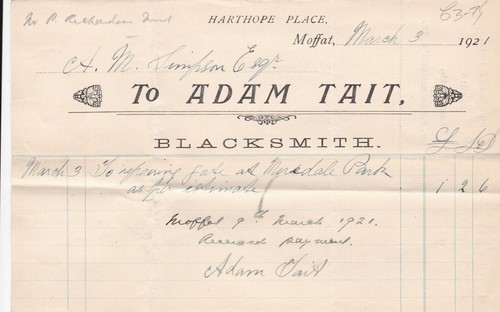 Mr P. Richardson
HARTHOPE PLACE,
Moffat, March 3 1921
A. M. Simpson Esqr
To ADAM TAIT,
BLACKSMITH.
£ S D
March 3 To repairing gate at Park
as per estimate 1 2 6
Moffat 9th March 1921.
Received payment.
Adam Tait